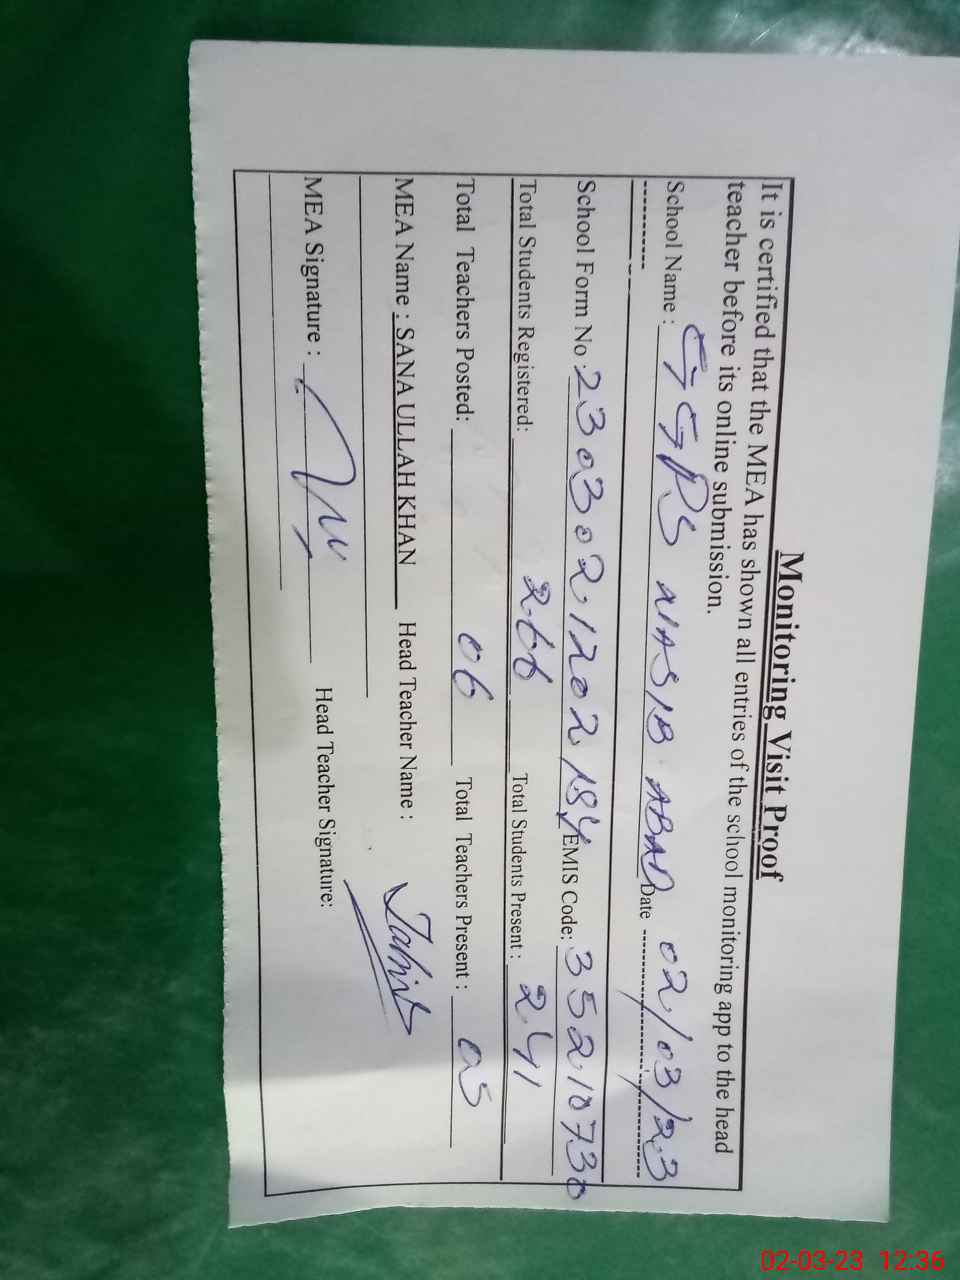 Monitoring Visit Proof
It is certified that the MEA has shown all entries of the school monitoring app to the head
teacher before its online submission.
School Name : GGPS NASIB ABAD Date 02/03/23
School Form No : 2303021202184 EMIS Code: 35210730
Total Students Registered: 266 Total Students Present : 241
Total Teachers Posted: 06 Total Teachers Present : 05
MEA Name : SANA ULLAH KHAN Head Teacher Name :
MEA Signature : Head Teacher Signature:
02-03-23 12:36